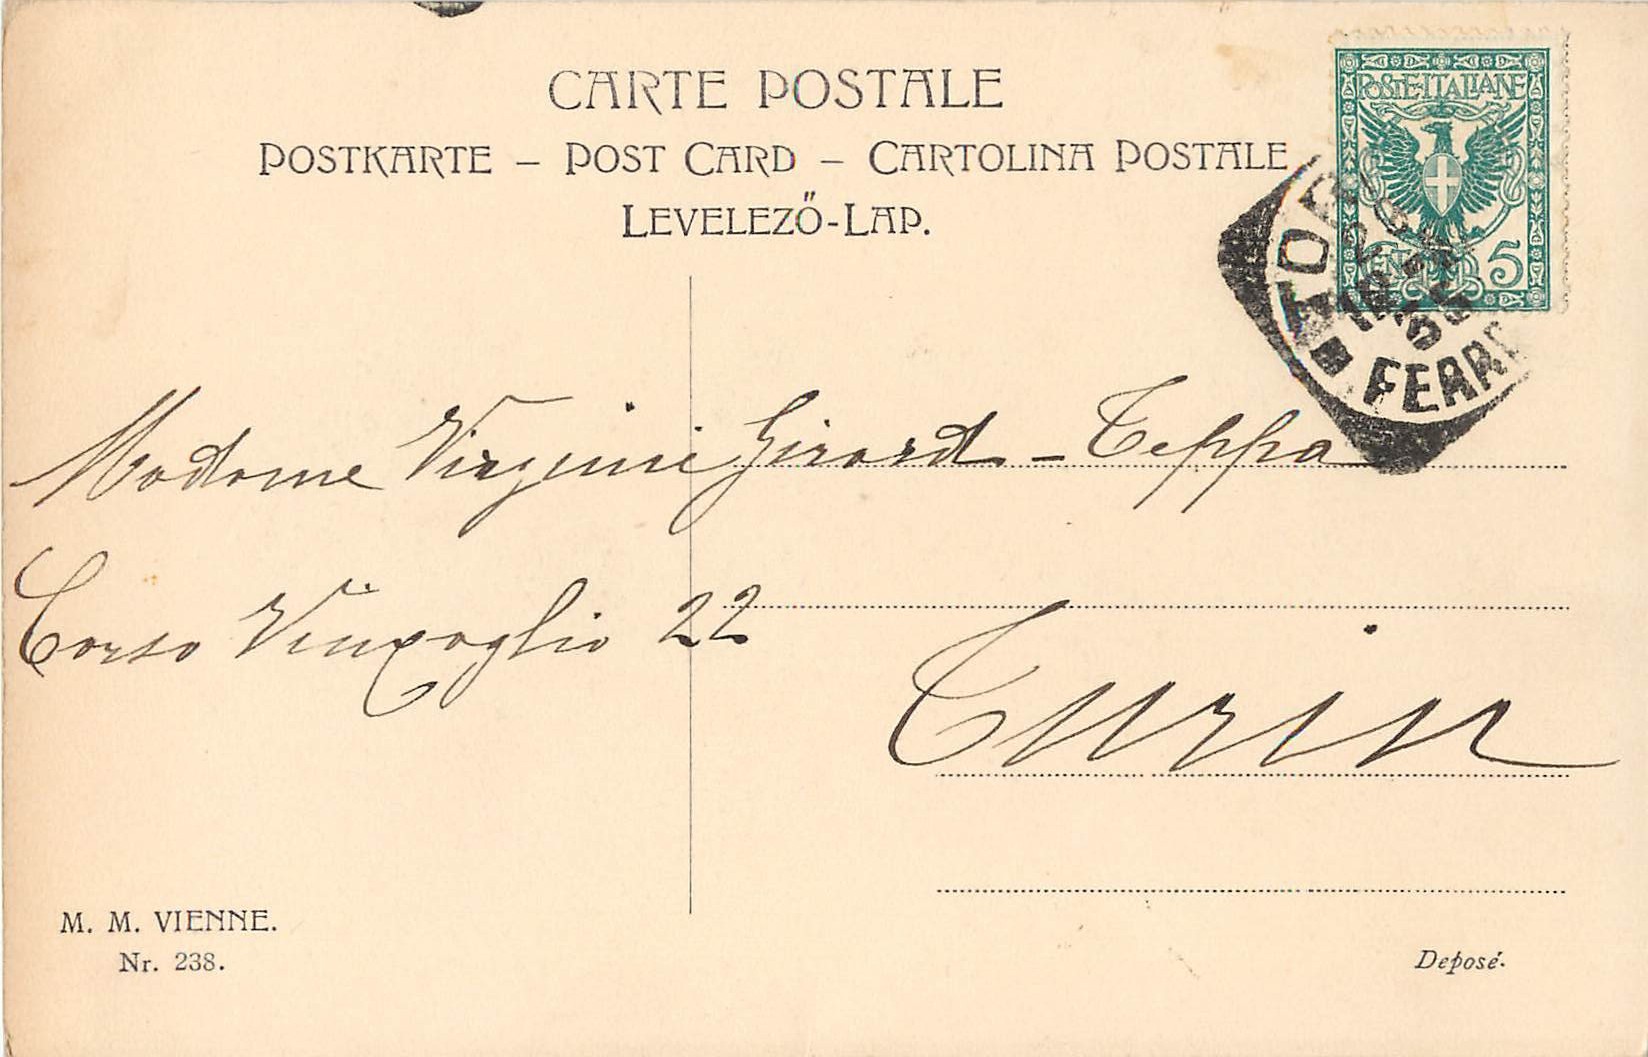 CARTE POSTALE
POSTKARTE – POST CARD – CARTOLINA POSTALE
LEVELEZŐ-LAP.
POSTE·ITALIANE
5
TORI
FERR
Madame Virginie Girard - Teppa
Corso Vinzaglio 22
Turin
M. M. VIENNE.
Nr. 238.
Deposé.